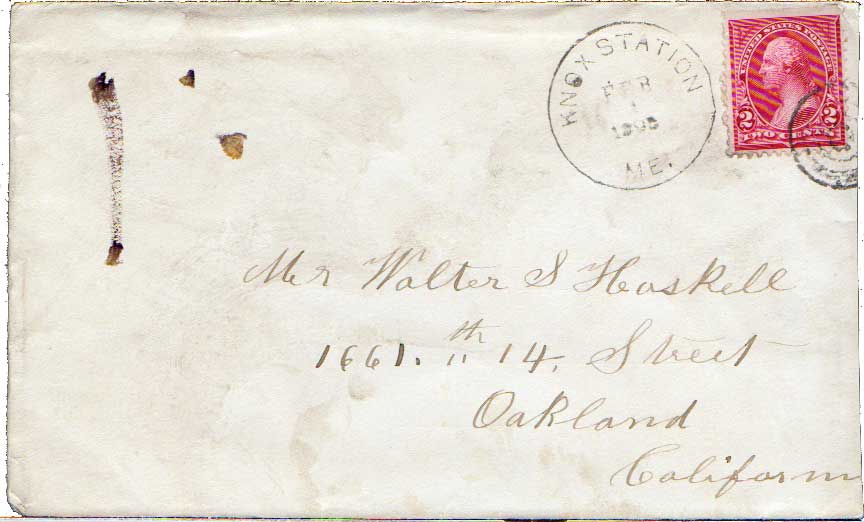 KNOX STATION
FEB
1
ME.
UNITED STATES POSTAGE
2 2
TWO CENTS
Mr Walter S Haskell
1661. 〃 th 14, Street
Oakland
Californ